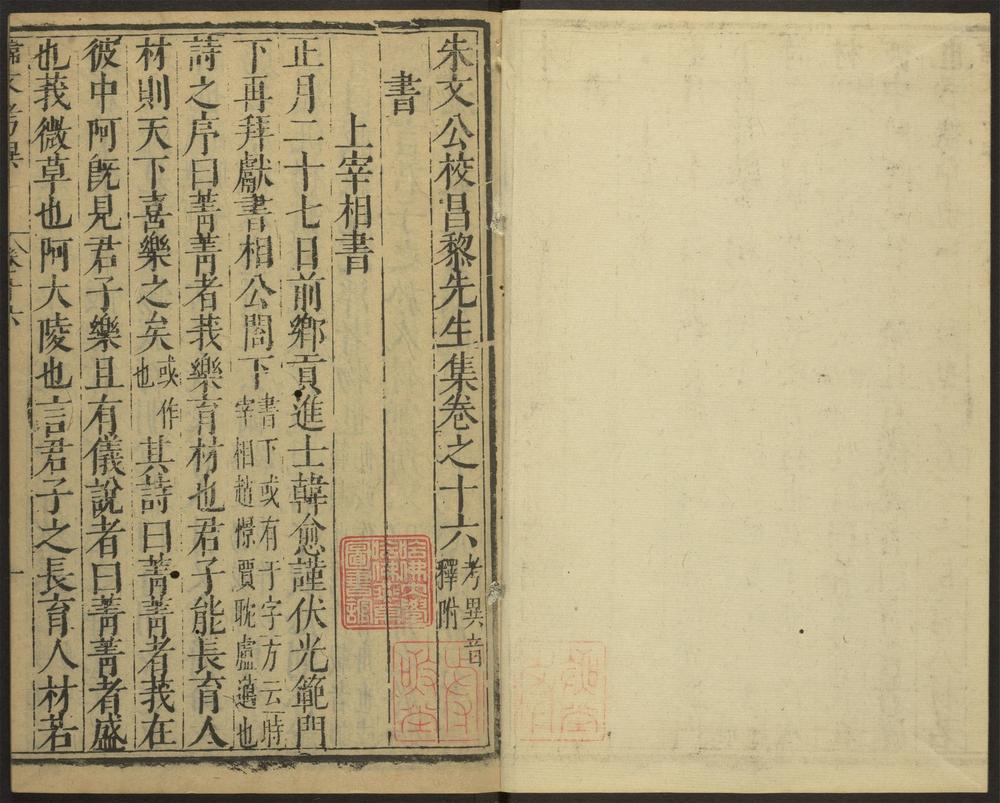 朱文公校昌黎先生集卷之十六 考異音釋附
書
上宰相書
正月二十七日前鄉貢進士韓愈謹伏光範門
下再拜獻書相公閤下 書下或有于字方云時宰相趙憬賈耽盧邁也
詩之序曰菁菁者莪樂育材也君子能長育人
材則天下喜樂之矣 或作也 其詩曰菁菁者莪在
彼中阿旣見君子樂且有儀說者曰菁菁者盛
也莪微草也阿大陵也言君子之長育人材若
韓文考異 卷十六 一
哈佛大學哈佛燕京圖書館